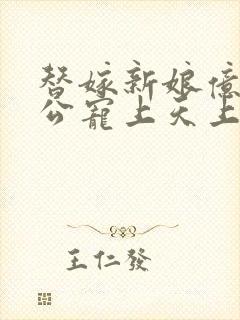 替嫁新娘億
公寵上天上
王仁發